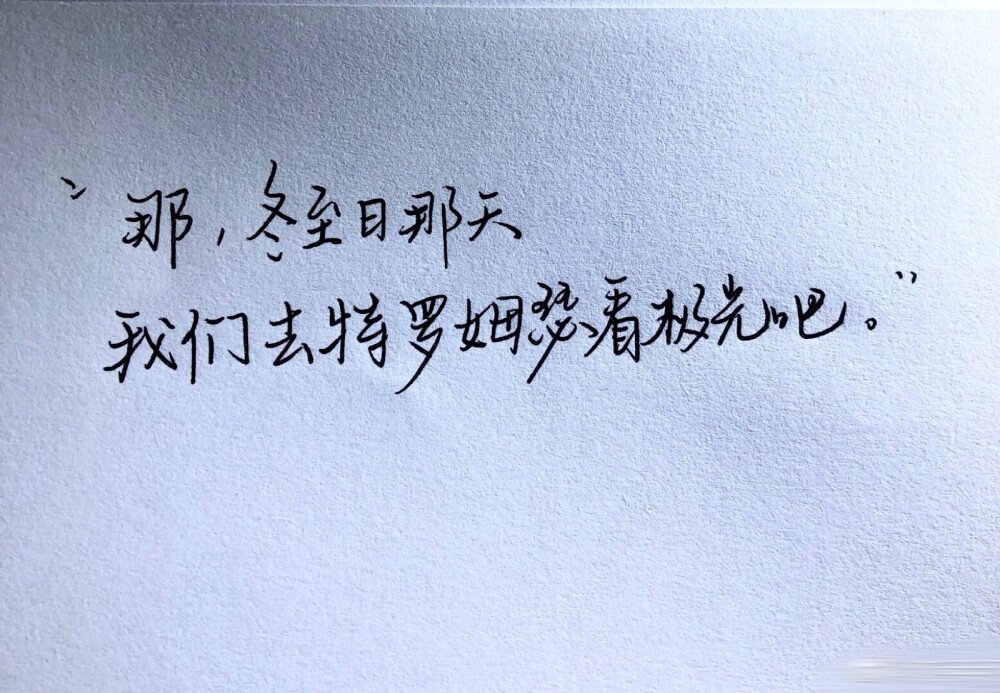 “那，冬至日那天
我们去特罗姆瑟看极光吧。”